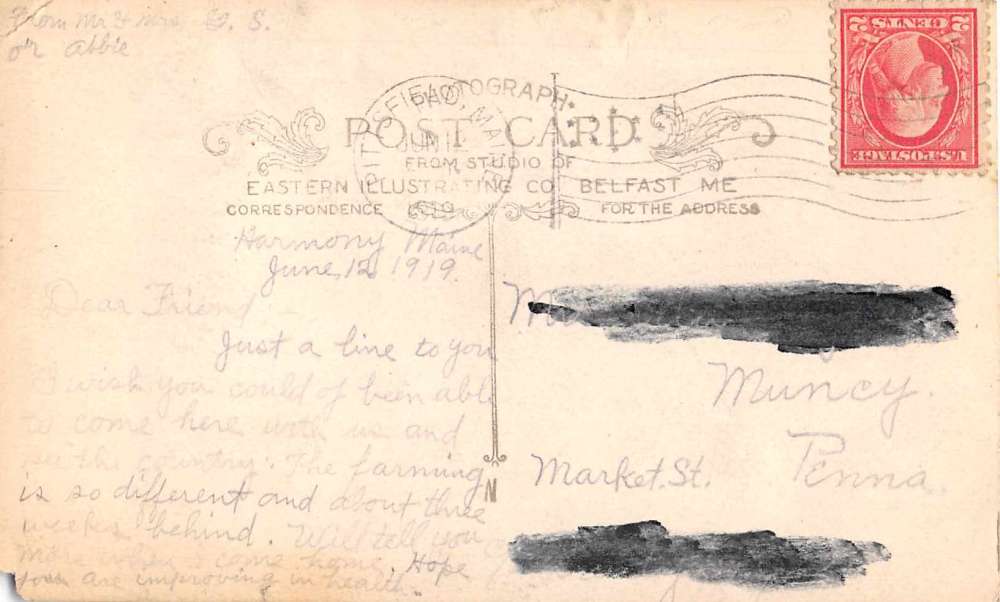 From Mr & Mrs G. S.
or Abbie
PHOTOGRAPH
POST CARD
FROM STUDIO OF
EASTERN ILLUSTRATING CO BELFAST ME
CORRESPONDENCE
FOR THE ADDRESS
PITTSFIELD, MAINE
JUN
1919
2 CENTS 2
U.S. POSTAGE
Harmony Maine
June 12, 1919.
Dear Friend
Just a line to you
I wish you could of been able
to come here with us and
see the country. The farming
is so different and about three
weeks behind. Will tell you
more when I come home. Hope
you are improving in health.
Muncy.
Penna.
Market. St.
N